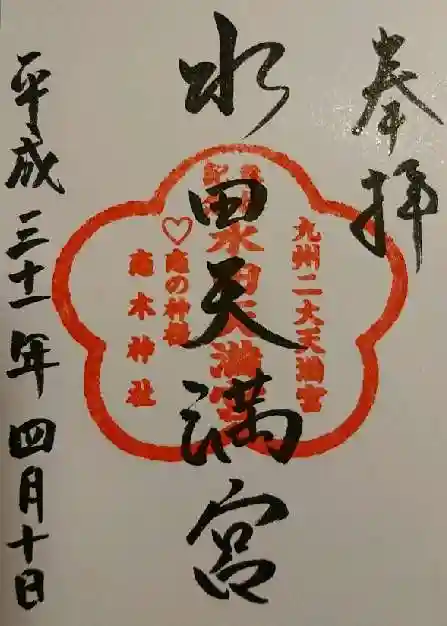 奉拝
九州二大天満宮
水田天満宮
水田天満宮
♡恋の神様
恋木神社
平成三十一年四月十日